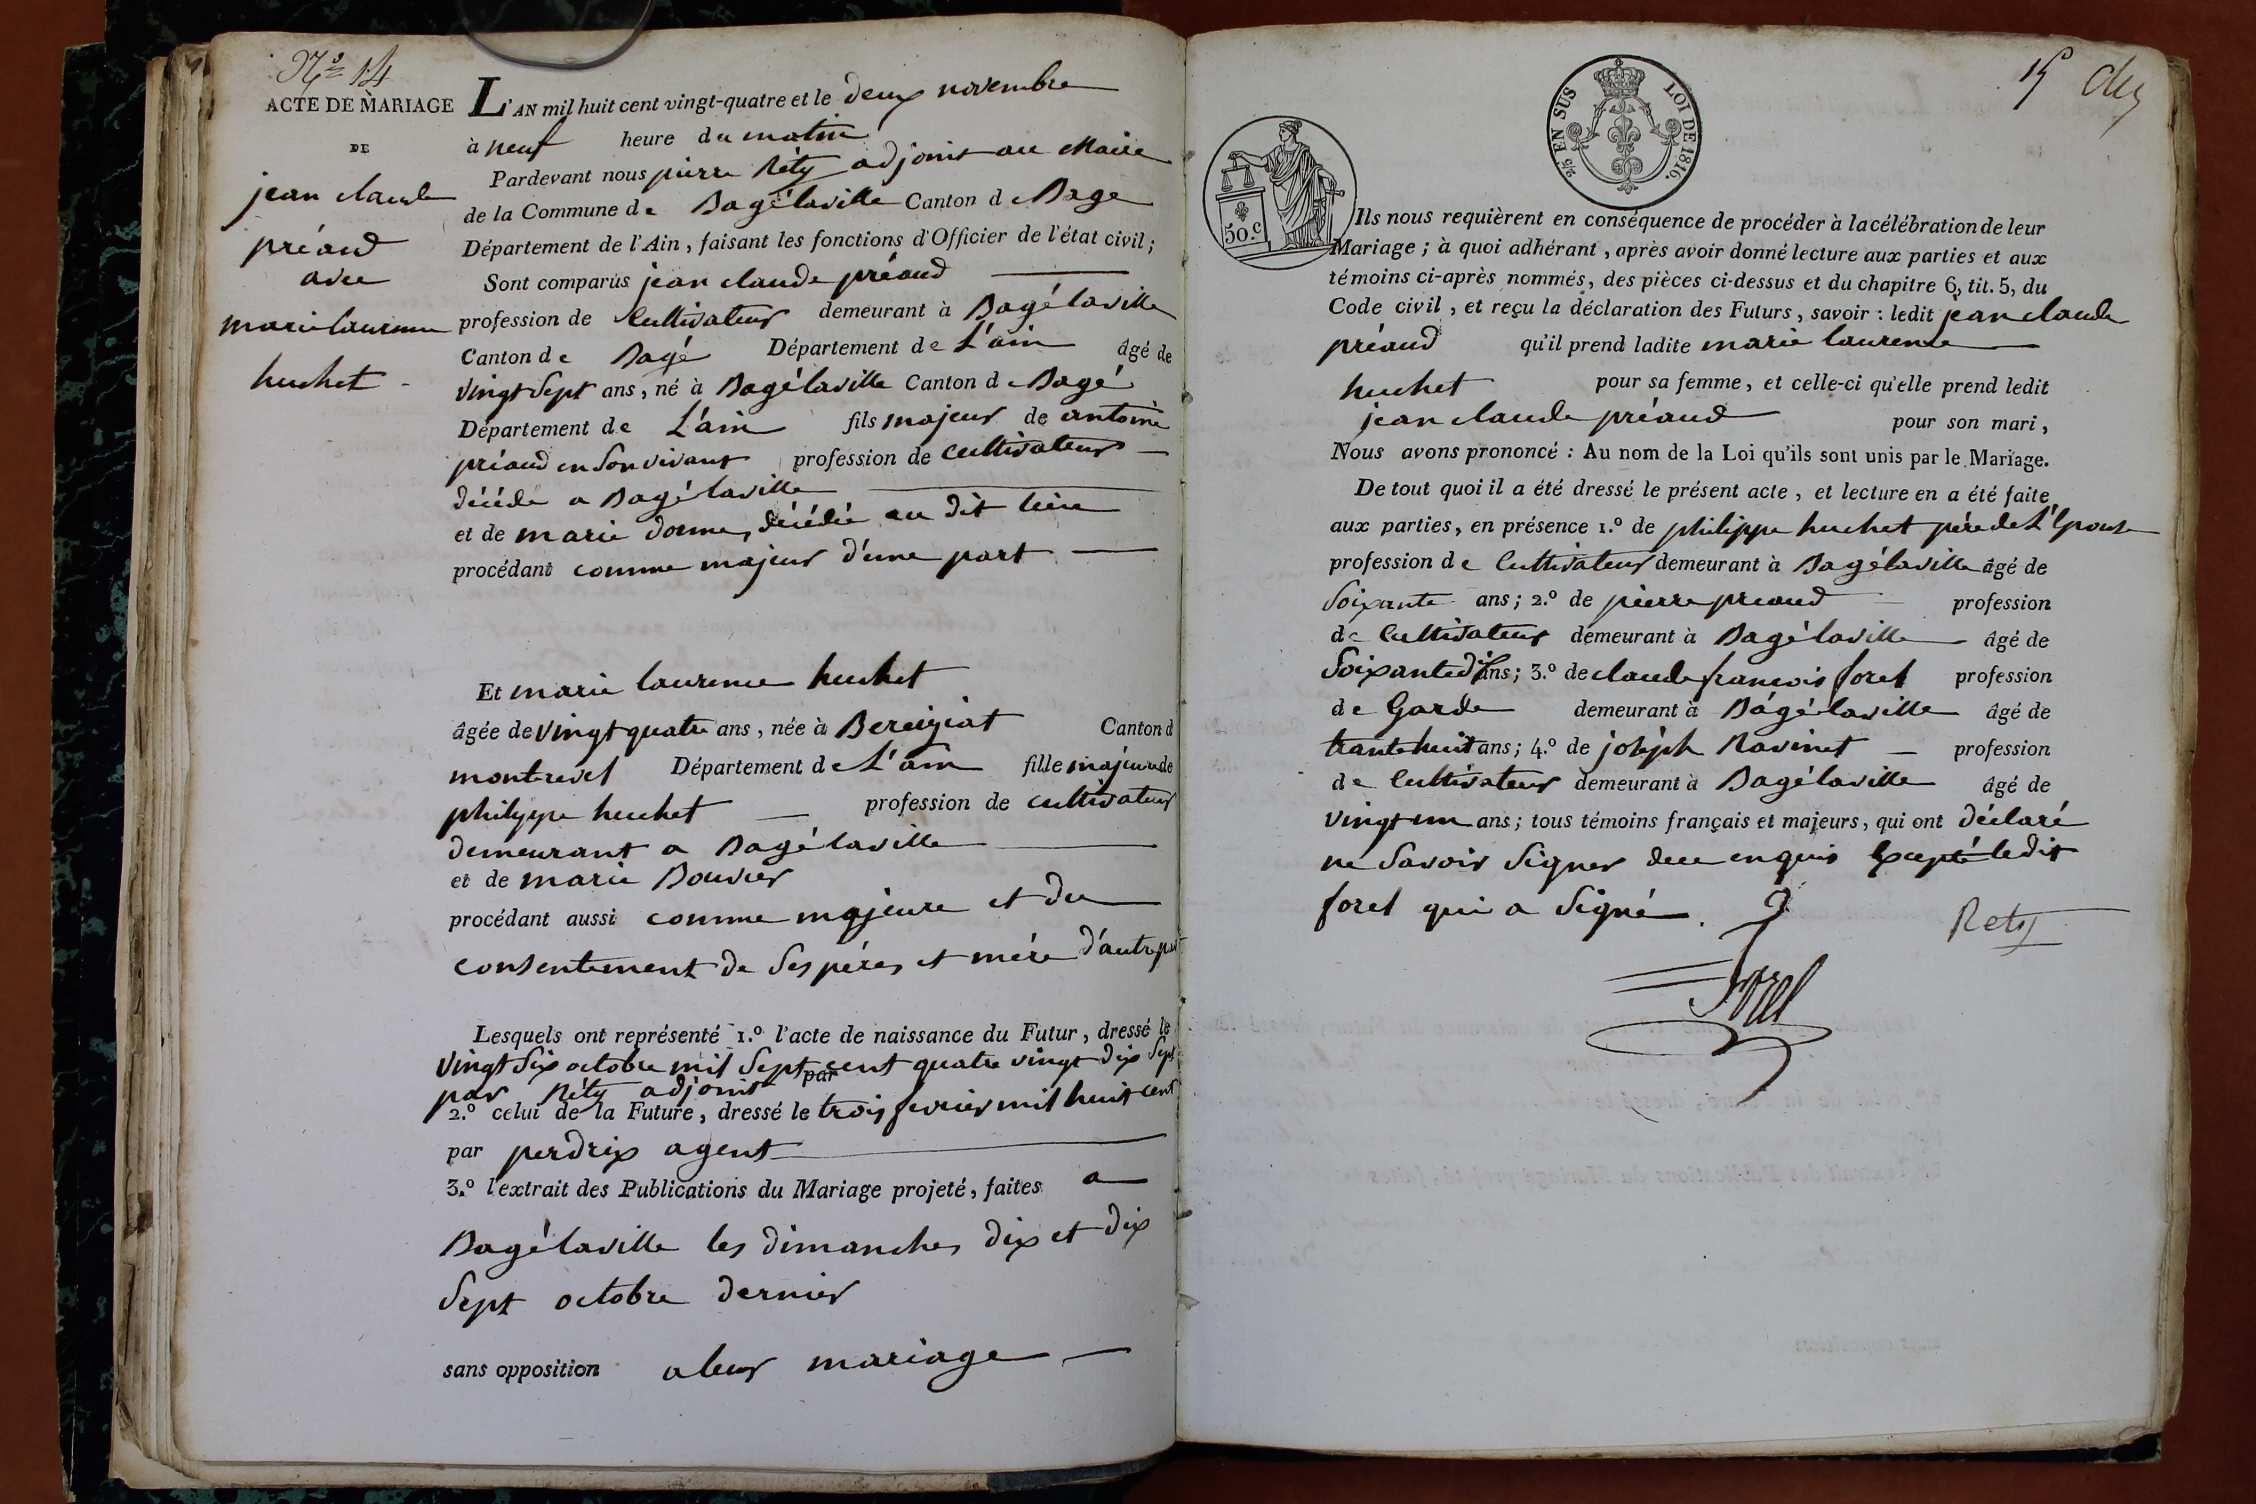 N.º 14
ACTE DE MARIAGE
DE
jean claude
préaud
avec
marie laurence
huchet
L'AN mil huit cent vingt-quatre et le deux novembre
à neuf heure du matin
Pardevant nous pierre Réty adjoint au Maire
de la Commune de Bagélaville Canton d Bage
Département de l'Ain, faisant les fonctions d'Officier de l'état civil;
Sont comparus jean claude préaud
profession de Cultivateur demeurant à Bagélaville
Canton de Bagé Département de L'ain âgé de
vingt Sept ans, né à Bagélaville Canton d Bagé
Département de L'ain fils majeur de antoine
préaud en Son vivant profession de cultivateur
décédé a Bagélaville
et de marie donne, décédée au dit lieu
procédant comme majeur d'une part
Et marie laurence huchet
âgée de vingt quatre ans, née à Bereiziat Canton d
montrevel Département de L'ain fille majeure de
philippe huchet profession de cultivateur
demeurant a Bagélaville
et de marie Bouvier
procédant aussi comme majeure et du
consentement de Ses péres et mére d'autre part
Lesquels ont représenté 1.º l'acte de naissance du Futur, dressé le
vingt Six octobre mil Sept cent quatre vingt dix Sept
par
par Réty adjoint
2.º celui de la Future, dressé le trois fevrier mil huit cent
par perdrix agent
3.º l'extrait des Publications du Mariage projeté, faites a
Bagélaville les dimanches dix et dix
Sept octobre dernier
sans opposition a leur mariage
15
2/5 EN SUS LOI DE 1816.
50.C
Ils nous requièrent en conséquence de procéder à la célébration de leur
Mariage; à quoi adhérant, après avoir donné lecture aux parties et aux
témoins ci-après nommés, des pièces ci-dessus et du chapitre 6, tit. 5, du
Code civil, et reçu la déclaration des Futurs, savoir: ledit jean claude
préaud qu'il prend ladite marie laurence
huchet pour sa femme, et celle-ci qu'elle prend ledit
jean claude préaud pour son mari,
Nous avons prononcé: Au nom de la Loi qu'ils sont unis par le Mariage.
De tout quoi il a été dressé le présent acte, et lecture en a été faite
aux parties, en présence 1.º de philippe huchet pére de L'Epouse
profession de Cultivateur demeurant à Bagélaville âgé de
Soixante ans; 2.º de pierre preaud profession
de Cultivateur demeurant à Bagélaville âgé de
Soixante dix ans; 3.º de claude francois forel profession
de Garde demeurant à Bagélaville âgé de
trante huit ans; 4.º de joséph Ravinet profession
de Cultivateur demeurant à Bagélaville âgé de
vingt un ans; tous témoins français et majeurs, qui ont déclaré
ne Savoir Signer de ce enquis Excepté ledit
forel qui a Signé.
Rety
Forel